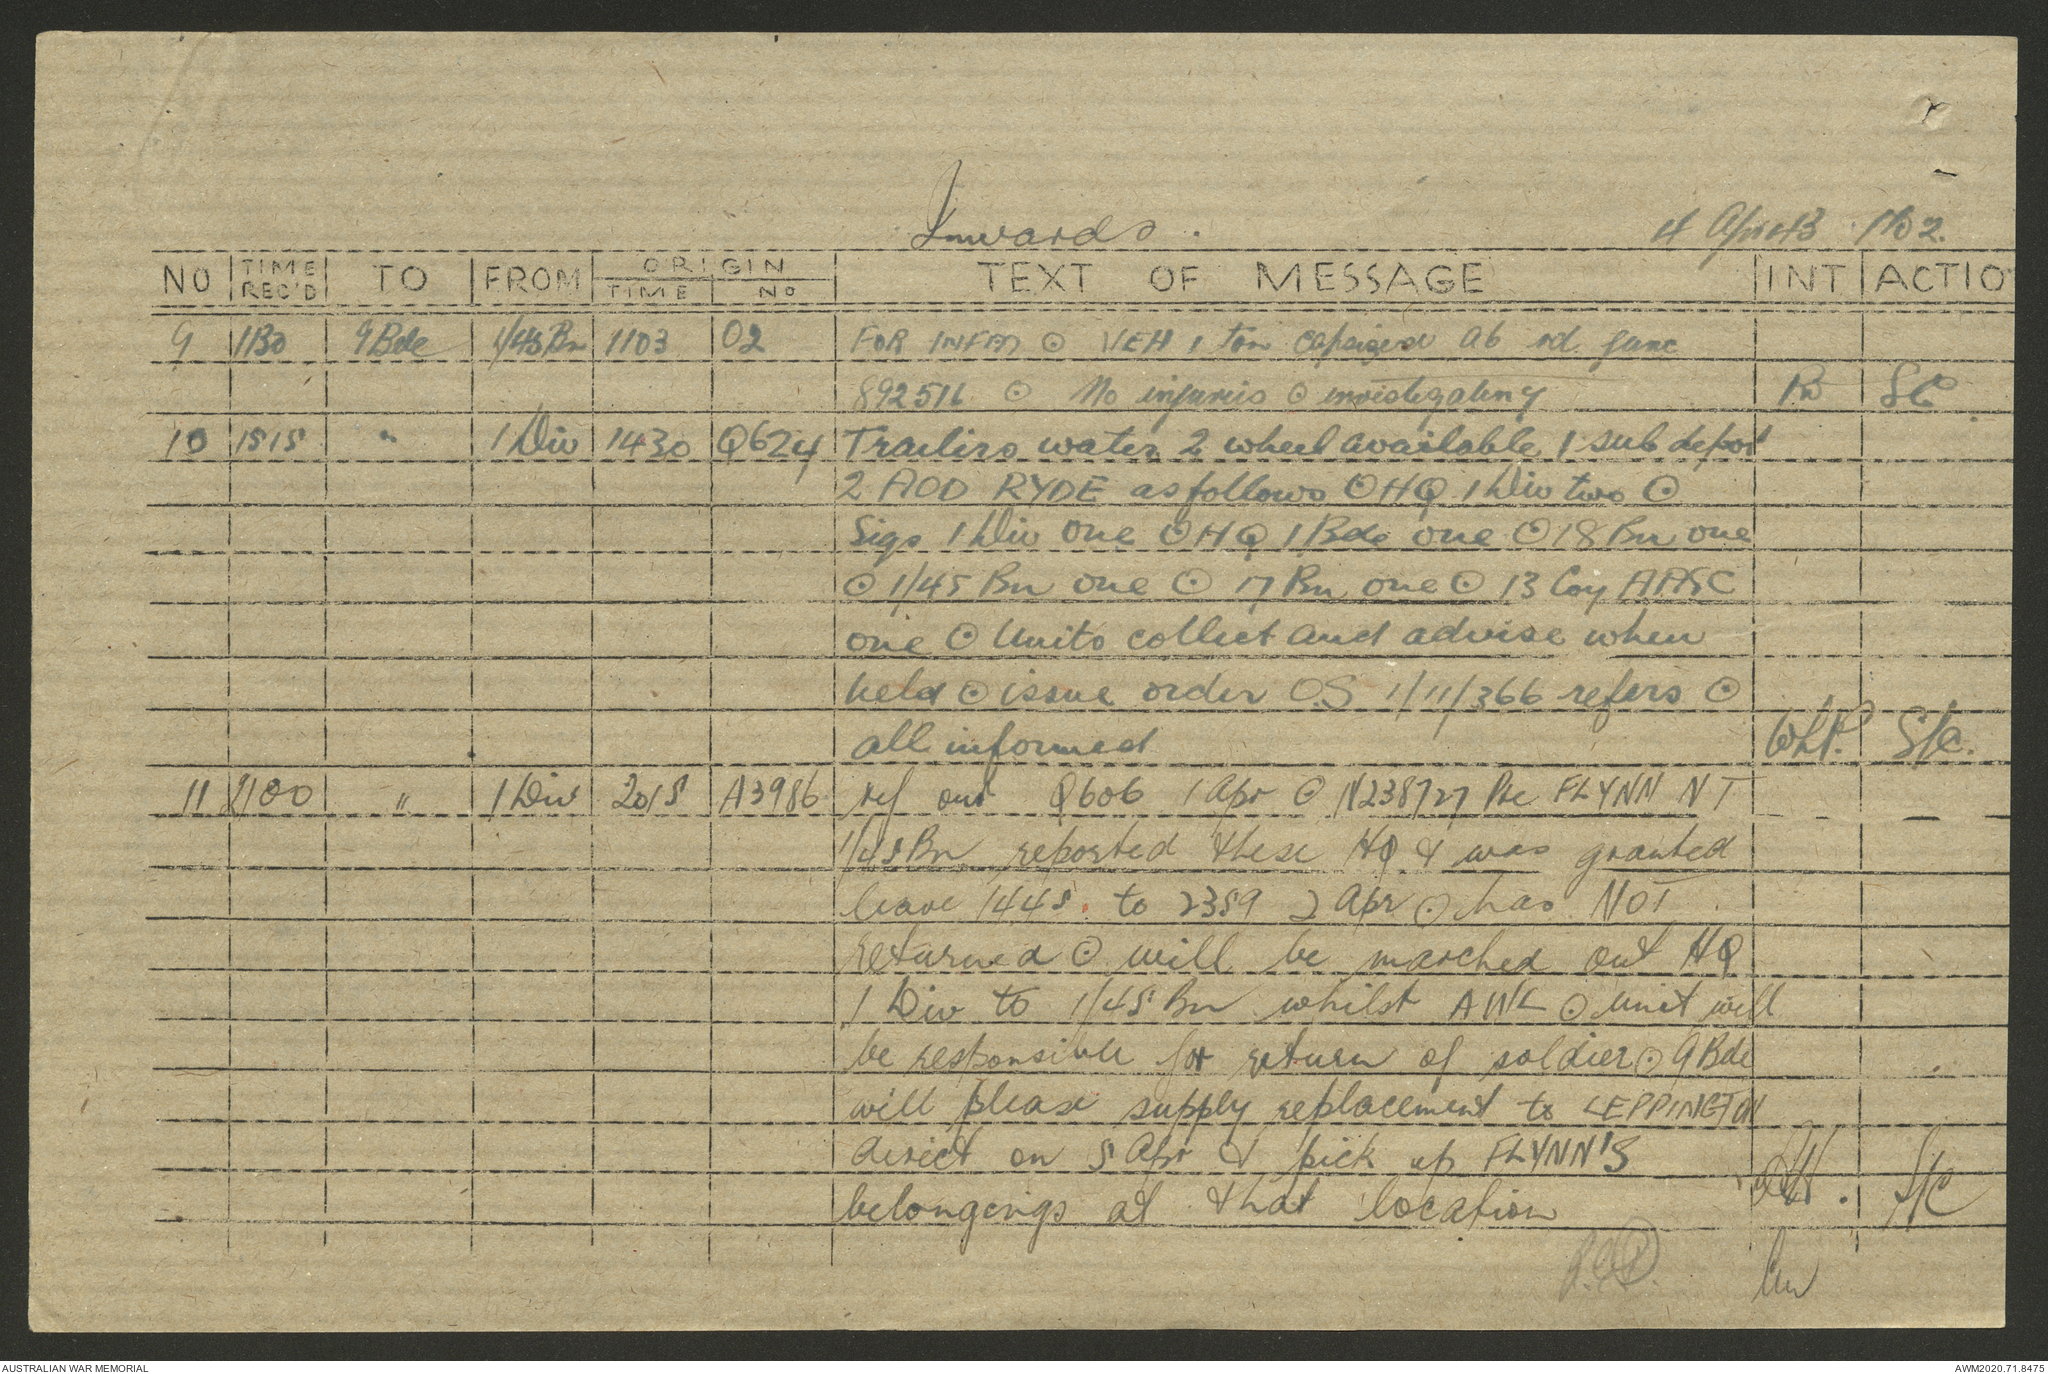 Inwards.
4 Apr 43 P/O 2.
NO TIME REC'D TO FROM ORIGIN TIME NO TEXT OF MESSAGE INT ACTIO
9 1130 9 Bde 1/45 Bn 1103 O2 FOR INFM ⊙ VEH 1 ton capsized at rd junc
892516 ⊙ No injuries ⊙ investigating SC
10 1515 " 1 Div 1430 Q624 Trailers water 2 wheel available 1 sub depot
2 AOD RYDE as follows ⊙ HQ 1 Div two ⊙
Sigs 1 Div one ⊙ HQ 1 Bde one ⊙ 18 Bn one
⊙ 1/45 Bn one ⊙ 17 Bn one ⊙ 13 Coy AASC
one ⊙ Units collect and advise when
held ⊙ issue order OS 1/11/366 refers ⊙
all informed S/C.
11 2100 " 1 Div 2015 A3986 ref our Q606 1 Apr ⊙ N238727 Pte FLYNN NT
1/45 Bn reported these HQ & was granted
leave 1445 to 2359 2 Apr ⊙ has NOT
returned ⊙ will be marched out HQ
1 Div to 1/45 Bn whilst AWL ⊙ unit will
be responsible for return of soldier ⊙ 9 Bde
will please supply replacement to LEPPINGTON
direct on 5 Apr & pick up FLYNN'S
belongings at that location S/C
AUSTRALIAN WAR MEMORIAL
AWM2020.71.8475